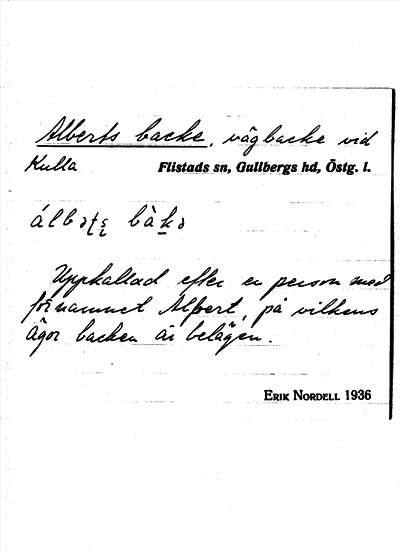 Alberts backe, vägbacke vid
Kulla Flistads sn, Gullbergs hd, Östg. l.
álbəţş bàk̠ə
Uppkallad efter en person med
förnamnet Albert, på vilkens
ägor backen är belägen.
ERIK NORDELL 1936